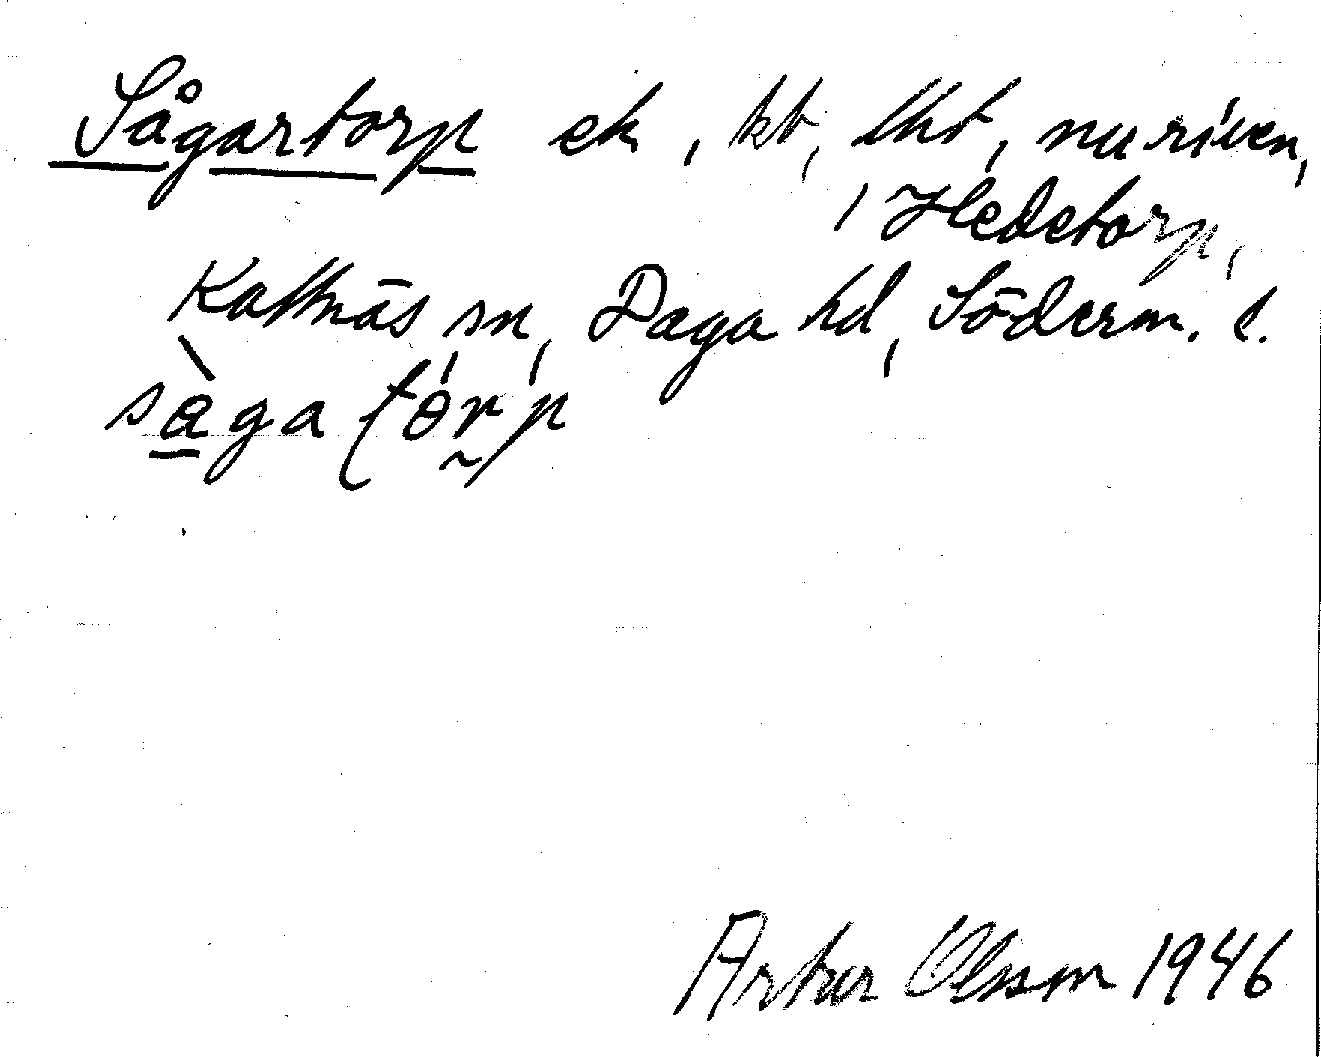 Sågartorp ek, kt, lht, nu riven,
i Hedetorp,
Kattnäs sn, Daga hd, Söderm. l.
sàga torp
Artur Olsson 1946